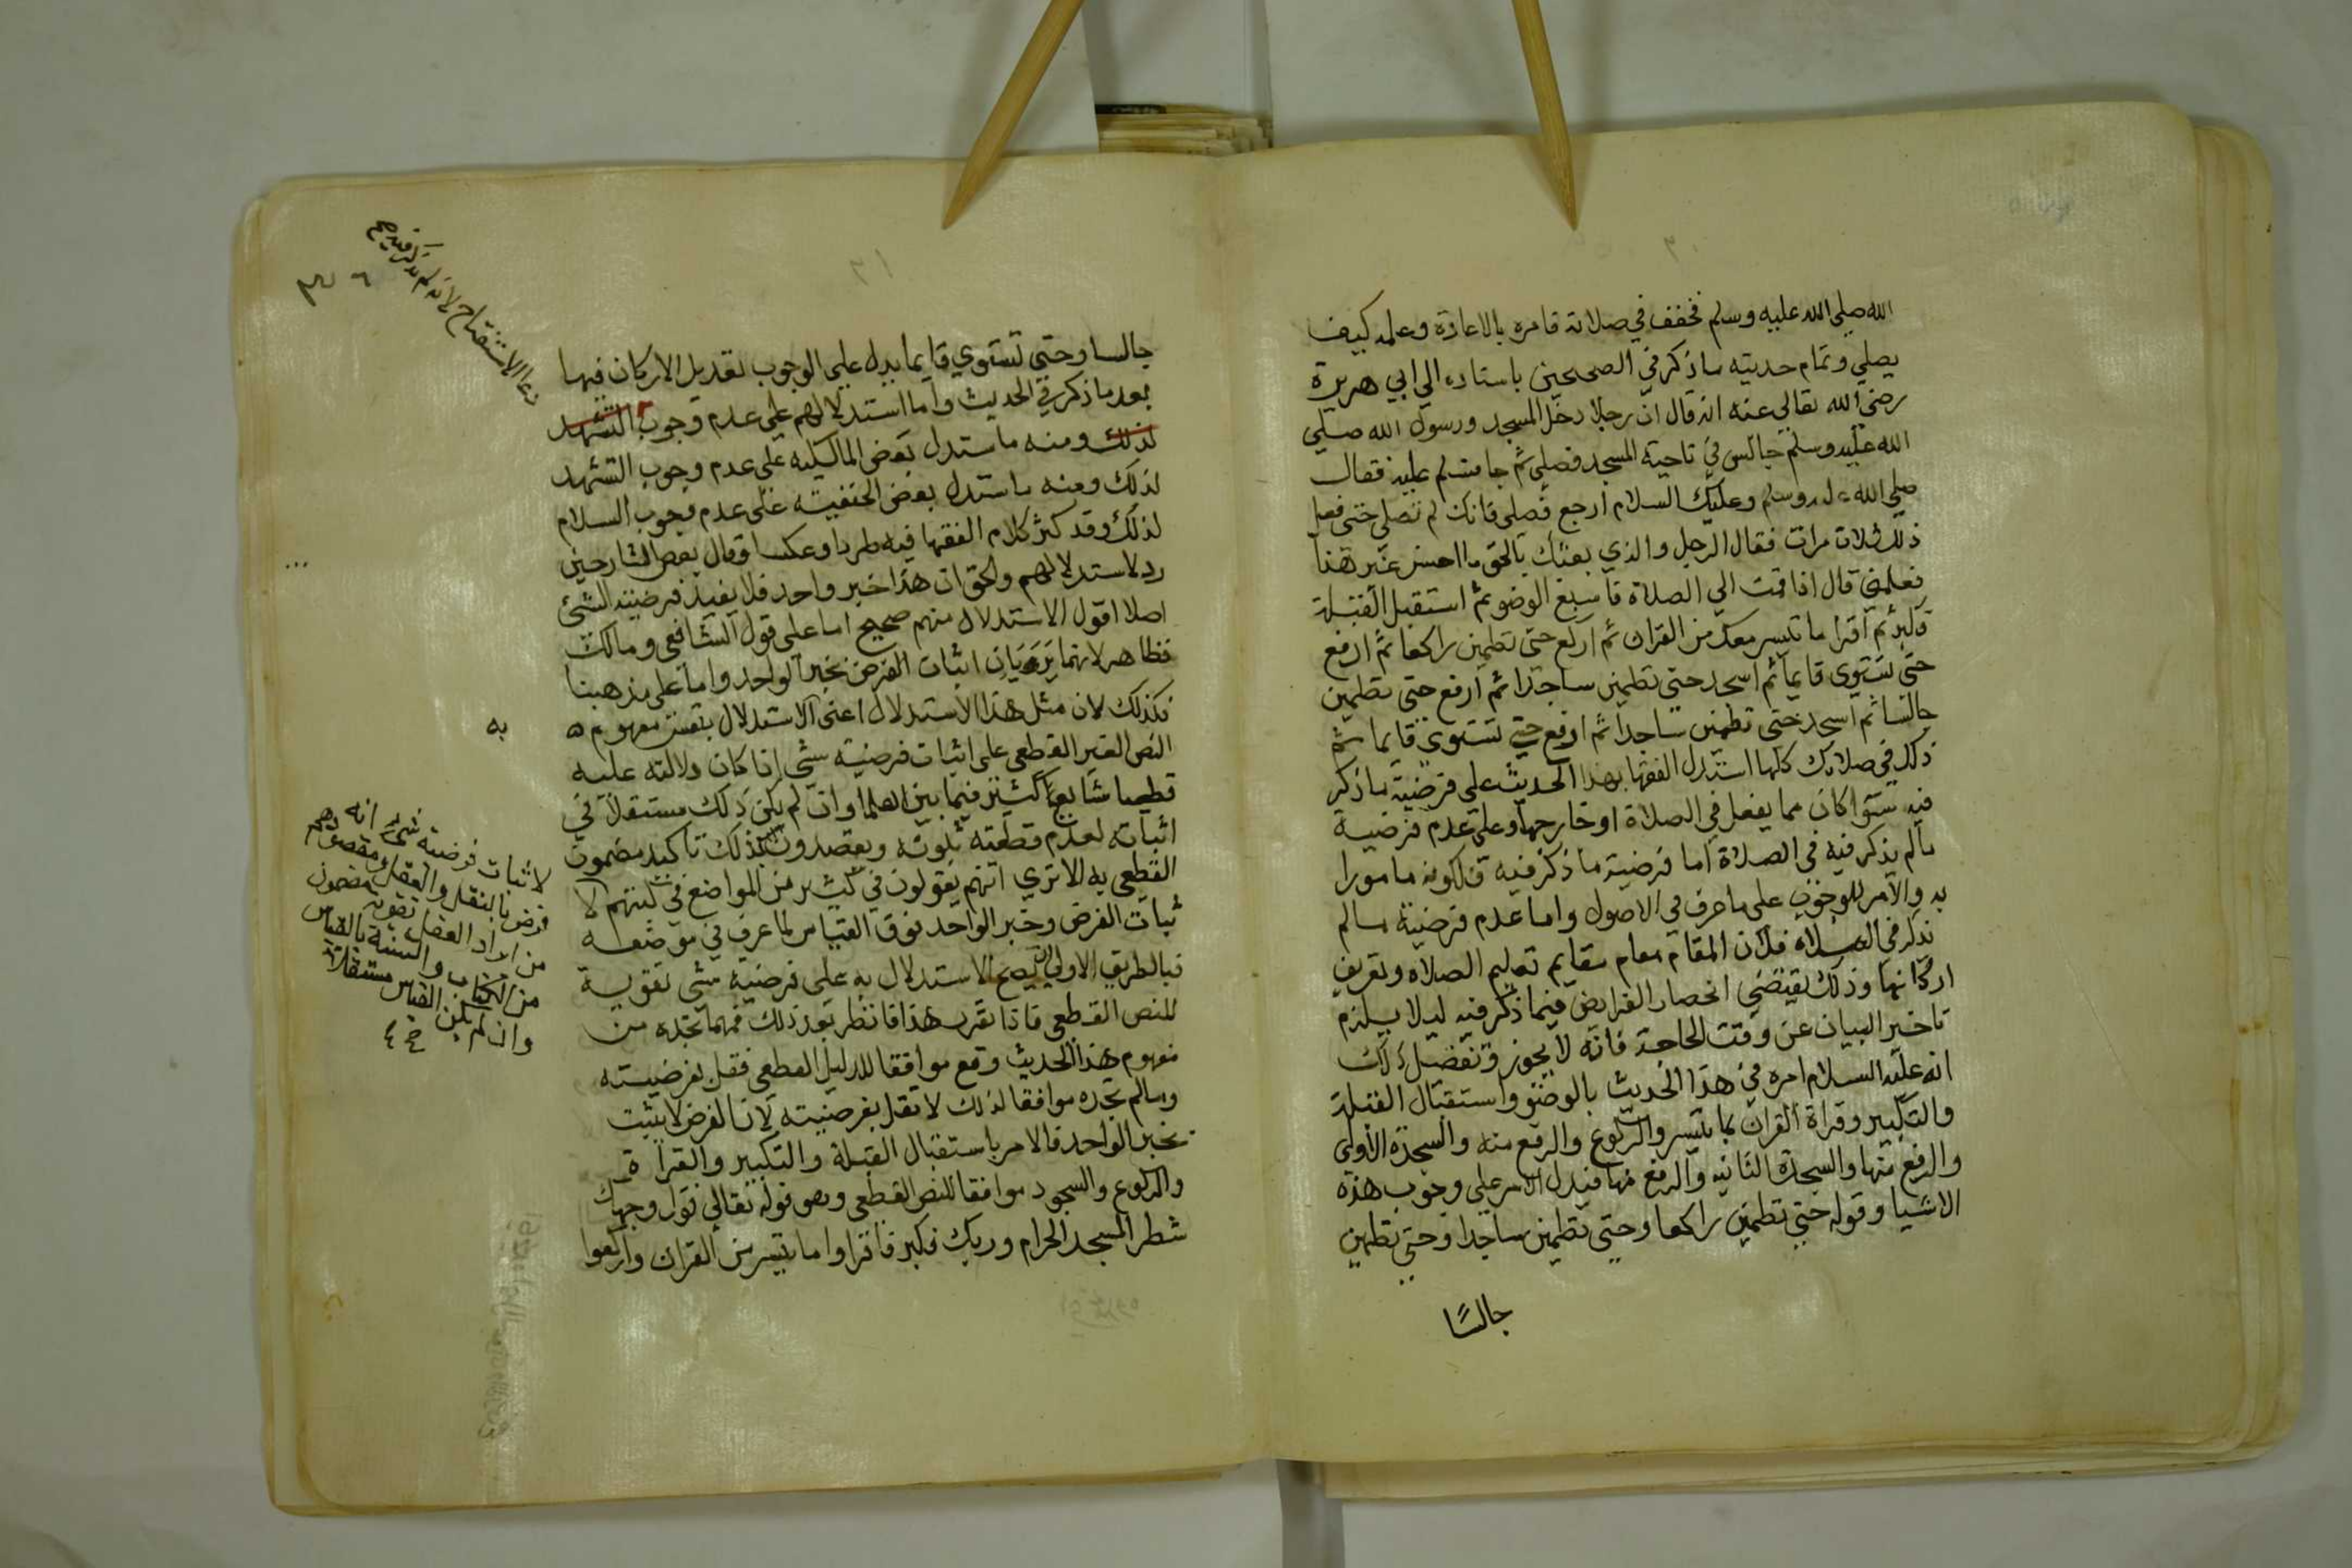 الله صلي الله عليه وسلم فخفف في صلاته فامره بالاعادة وعلمه كيف
يصلي وتمام حديثه ما ذكر في الصحيحين باسناده الي ابي هريرة
رضي الله تعالي عنه انه قال ان رجلا دخل المسجد ورسول الله صلي
الله عليه وسلم جالس في ناحية المسجد فصلي ثم جا فسلم عليه فقال
صلي الله عليه وسلم وعليك السلام ارجع فصلي فانك لم تصلي حتي فعل
ذلك ثلاث مرات فقال الرجل والذي بعثك بالحق ما احسن غير هذا
فعلمني قال اذا قمت الي الصلاة فاسبغ الوضو ثم استقبل القبلة
فكبر ثم اقرا ما تيسر معك من القران ثم اركع حتي تطمين راكعا ثم ارفع
حتي تستوي قايما ثم اسجد حتي تطمين ساجدا ثم ارفع حتي تطمين
جالسا ثم اسجد حتي تطمين ساجدا ثم ارفع حتي تستوي قايما ثم
ذلك في صلاتك كلها استدل الفقها بهذا الحديث علي فرضية ما ذكر
فيه ستوا كان مما يفعل في الصلاة او خارجها وعلي عدم فرضية
مالم يذكر فيه في الصلاة اما فرضية ما ذكر فيه فلكونه مامورا
به والامر للوجوب علي ما عرف في الاصول واما عدم فرضية مالم
يذكر في الصلاة فلان المقام مقام تعليم الصلاة وتعريف
اركانها وذلك يقتضي انحصار الفرايض فيما ذكر فيه ليلا يلزم
تاخير البيان عن وقت الحاجة فانه لا يجوز وتفضيل ذلك
انه عليه السلام امره في هذا الحديث بالوضو واستقبال القبلة
والتكبير وقراة القران بما تيسر والركوع والرفع منه والسجدة الاولي
والرفع منها والسجدة الثانية والرفع منها فيدل الامر علي وجوب هذه
الاشيا وقوله حتي تطمين راكعا وحتي تطمين ساجدا وحتي تطمين
جالسًا
٣١
دعا الاستفتاح لانه لم يذكر فيه صح
جالسا وحتي تستوي قايما يدل علي الوجوب لتعديل الاركان فيها
بعد ما ذكر في الحديث واما استدلالهم علي عدم وجوب التشهد
لذلك ومنه ما استدل بعض المالكيه علي عدم وجوب التشهد
لذلك ومنه ما استدل بعض الحنفيته علي عدم وجوب السلام
لذلك وقد كثر كلام الفقها فيه طردا وعكسا وقال بعض الشارحين
رد لاستدلالهم والحق ان هذا خبر واحد فلا يفيد فرضية الشئ
اصلا اقول الاستدلال منهم صحيح اما علي قول الشافعي ومالك
فظاهر لانهما يريان اثبات الفرض بخبر الواحد واما علي مذهبنا
فكذلك لان مثل هذا الاستدلال اعني الاستدلال بنفس مفهوم
النص الغير القطعي علي اثبات فرضية شئ اذا كان دلالته عليه
قطعيا شايع كثير فيما بين العلما وان لم يكن ذلك مستقلا في
اثباته لعدم قطعته ثبوته ويقصدون بذلك تاكيد مضمون
القطعي به الا تري انهم يقولون في كثير من المواضع في كتبهم لا
ثبات الفرض وخبر الواحد فوق القياس لما عرف في موضعه
فبالطريق الاولي ان يصح الاستدلال به علي فرضية شئ تقوية
للنص القطعي فاذا تقرر هذا فانظر بعد ذلك فمهما تجده من
مفهوم هذا الحديث وقع موافقا للدليل القطعي فقل بفرضيته
ومالم تجده موافقا لذلك لا تقل بفرضيته لان الفرض لا يثبت
بخبر الواحد فالامر باستقبال القبلة والتكبير والقراة
والركوع والسجود موافقا للنص القطعي وهو قوله تعالي فول وجهك
شطر المسجد الحرام وربك فكبر فاقراوا ما تيسر من القران واركعوا
به
لاثبات فرضية شئ انه
فرض بالنقل والعقل ومقصودهم
من ايراد العقل تقوية مضمون
من الكتاب والسنة بالقياس
وان لم يكن القياس مستقلا